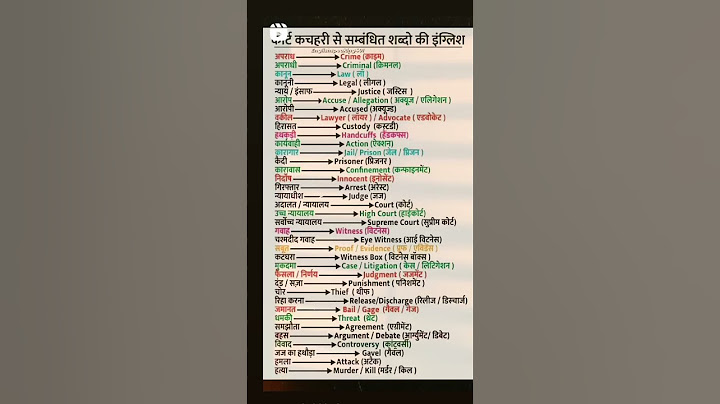 कोर्ट कचहरी से सम्बंधित शब्दो की इंग्लिश
अपराध Crime (क्राइम)
अपराधी Criminal (क्रिमनल)
कानून Law ( लॉ )
कानूनी Legal ( लीगल )
न्याय / इंसाफ Justice ( जस्टिस )
आरोप Accuse / Allegation ( अक्यूज / एलिगेशन )
आरोपी Accused (अक्यूज्ड)
वकील Lawyer ( लॉयर ) / Advocate ( एडवोकेट )
हिरासत Custody (कस्टडी)
हथकड़ी Handcuffs (हैंडकफ्स)
कार्यवाही Action (ऐक्शन)
कारागार Jail/ Prison (जेल / प्रिजन )
कैदी Prisoner (प्रिजनर )
कारावास Confinement (कन्फाइनमेंट)
निर्दोष Innocent (इनोसेंट)
गिरफ्तार Arrest (अरेस्ट)
न्यायाधीश Judge (जज)
अदालत / न्यायालय Court (कोर्ट)
उच्च न्यायालय High Court (हाईकोर्ट)
सर्वोच्च न्यायालय Supreme Court (सुप्रीम कोर्ट)
गवाह Witness (विटनेस)
चश्मदीद गवाह Eye Witness (आई विटनेस)
सबूत Proof / Evidence ( प्रूफ / एविडेंस )
कटघरा Witness Box ( विटनेस बॉक्स )
मुकदमा Case / Litigation ( केस / लिटिगेशन )
फैसला / निर्णय Judgment ( जजमेंट )
दंड / सज़ा Punishment ( पनिशमेंट )
चोर Thief ( थीफ )
रिहा करना Release/Discharge (रिलीज / डिस्चार्ज)
जमानत Bail / Gage (गैवल / गेज)
धमकी Threat (थ्रेट)
समझौता Agreement (एग्रीमेंट)
बहस Argument / Debate (आर्ग्युमेंट/ डिबेट)
विवाद Controversy (कांट्रवर्सी)
जज का हथौड़ा Gavel (गैवल)
हमला Attack (अटैक)
हत्या Murder / Kill (मर्डर / किल )